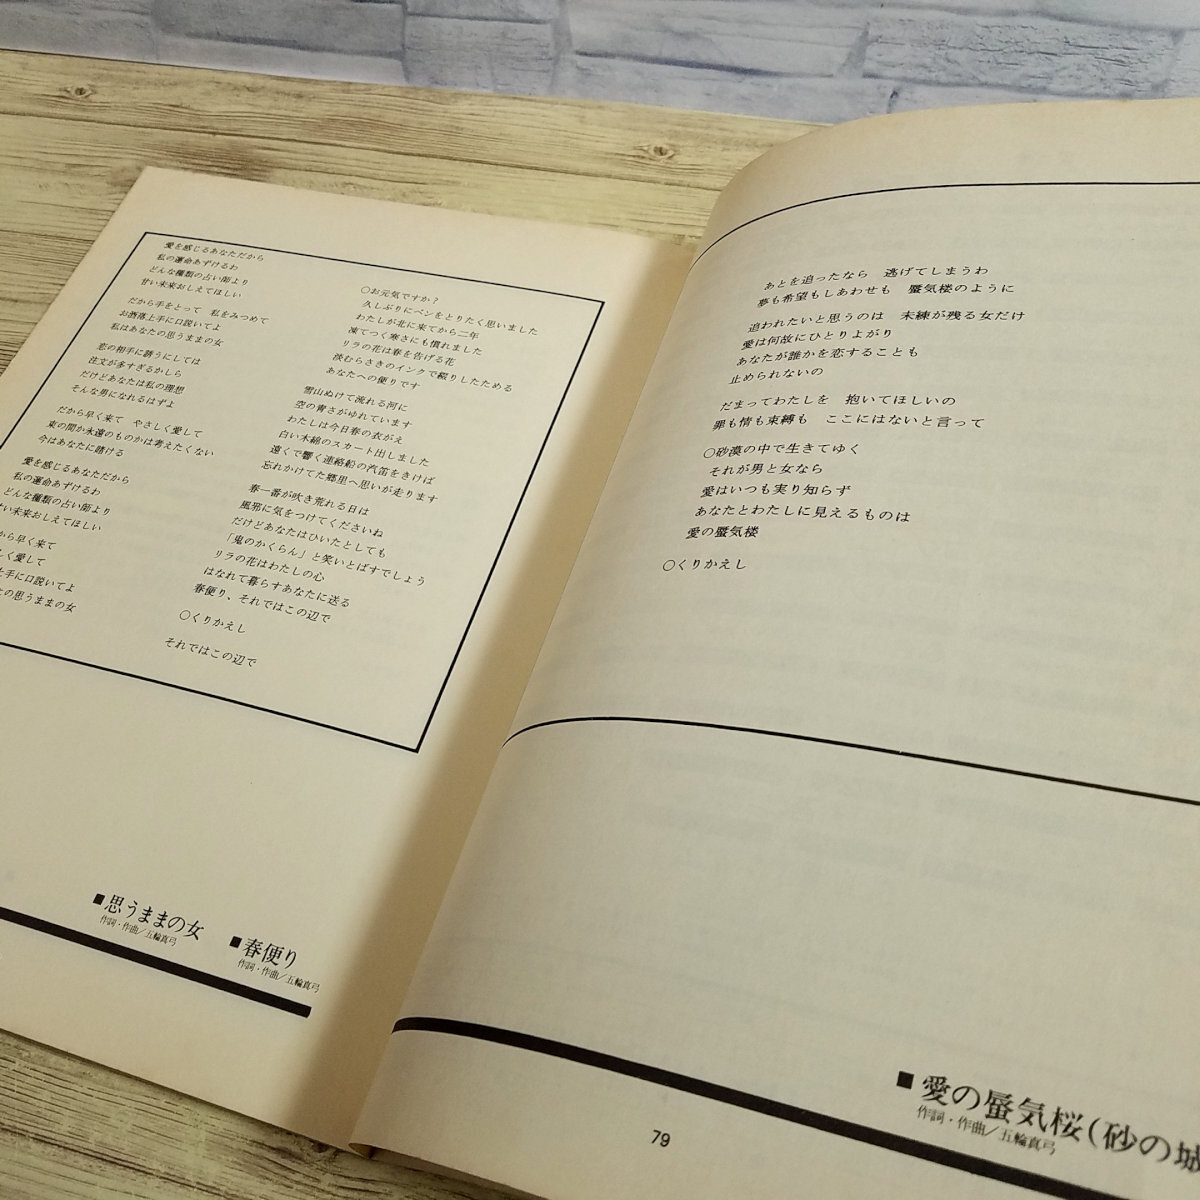 愛を感じるあなただから
私の運命あずけるわ
どんな種類の占い師より
甘い未来おしえてほしい
だから手をとって 私をみつめて
お洒落上手に口説いてよ
私はあなたの思うままの女
恋の相手に誘うにしては
注文が多すぎるかしら
だけどあなたは私の理想
そんな男になれるはずよ
だから早く来て やさしく愛して
束の間か永遠のものかは考えたくない
今はあなたに賭ける
愛を感じるあなただから
私の運命あずけるわ
どんな種類の占い師より
甘い未来おしえてほしい
から早く来て
しく愛して
上手に口説いてよ
たの思うままの女
○お元気ですか?
久しぶりにペンをとりたく思いました
わたしが北に来てから二年
凍てつく寒さにも慣れました
リラの花は春を告げる花
淡むらさきのインクで綴りしたためる
あなたへの便りです
雪山ぬけて流れる河に
空の青さがゆれています
わたしは今日春の衣がえ
白い木綿のスカート出しました
遠くで響く連絡船の汽笛をきけば
忘れかけてた郷里へ思いが走ります
春一番が吹き荒れる日は
風邪に気をつけてくださいね
だけどあなたはひいたとしても
「鬼のかくらん」と笑いとばすでしょう
リラの花はわたしの心
はなれて暮らすあなたに送る
春便り、それではこの辺で
○くりかえし
それではこの辺で
■思うままの女
作詞・作曲/五輪真弓
■春便り
作詞・作曲/五輪真弓
あとを追ったなら 逃げてしまうわ
夢も希望もしあわせも 蜃気楼のように
追われたいと思うのは 未練が残る女だけ
愛は何故にひとりよがり
あなたが誰かを恋することも
止められないの
だまってわたしを 抱いてほしいの
罪も情も束縛も ここにはないと言って
○砂漠の中で生きてゆく
それが男と女なら
愛はいつも実り知らず
あなたとわたしに見えるものは
愛の蜃気楼
○くりかえし
■愛の蜃気桜(砂の城
作詞・作曲/五輪真弓
79